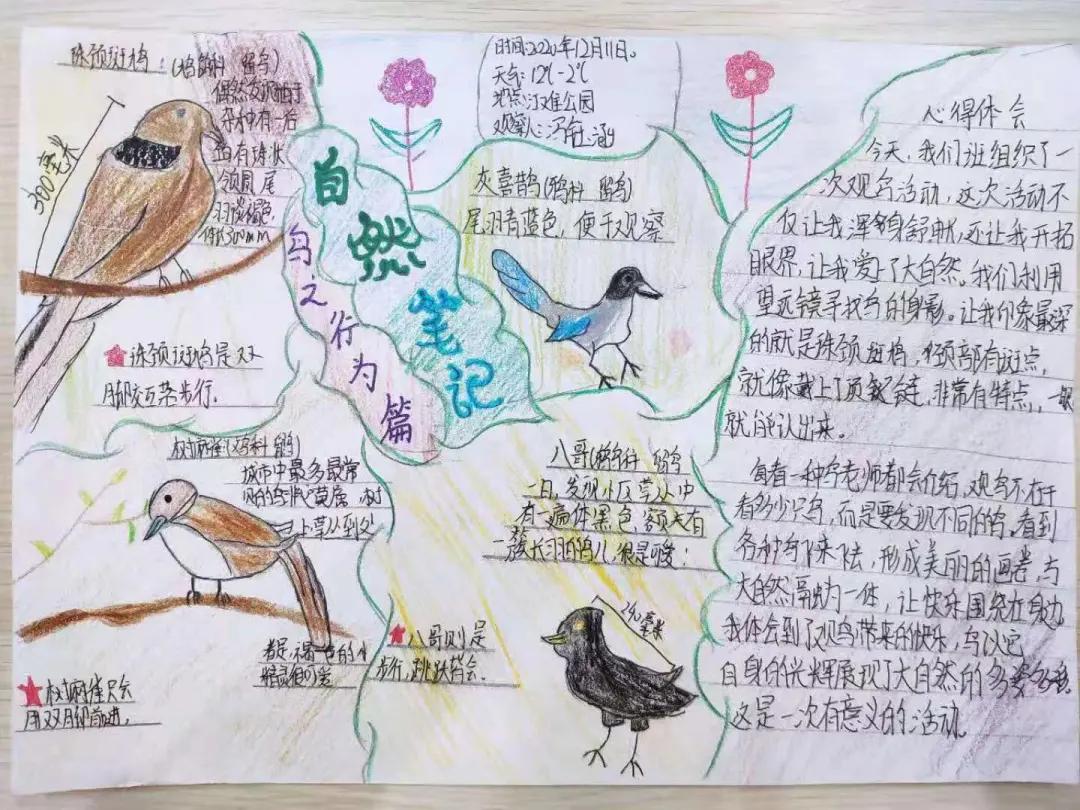 珠颈斑鸠：(鸠鸽科 留鸟)
偶然发现由于
杂种有一后
面有珠状
领圈尾
羽淡褐色
体长300mm
300毫米
★珠颈斑鸠是双
脚交互落步行。
自然笔记
鸟之行为篇
时间:2020年12月11日。
天气:12℃-2℃
地点:汀滩公园
观察人:冯
灰喜鹊(鸦科 留鸟)
尾羽青蓝色，便于观察
树麻雀(鸟科 留鸟)
城市中最多最常
见的鸟非它莫属，树
上草丛到处
都是，褐色的小
精灵很可爱
★树麻雀只会
用双脚前进。
八哥(椋鸟科 留鸟
一日，发现小区草丛中
有一遍体黑色，额头有
一簇长羽的鸟儿，很是可爱！
240毫米
★八哥则是
步行，跳跃皆会。
心得体会
今天，我们班组织了一
次观鸟活动，这次活动不
仅让我浑身舒畅，还让我开拓
眼界，让我爱上了大自然。我们利用
望远镜寻找鸟的身影。让我印象最深
的就是珠颈斑鸠，颈部有斑点，
就像戴上了项链，非常有特点，一眼
就能认出来。
每看一种鸟老师都会介绍，观鸟不在于
看多少只鸟，而是要发现不同的鸟。看到
各种鸟飞来飞去，形成美丽的画卷，与
大自然融为一体，让快乐围绕在身边
我体会到了观鸟带来的快乐，鸟以它
自身的光辉展现了大自然的多姿多彩，
这是一次有意义的活动。